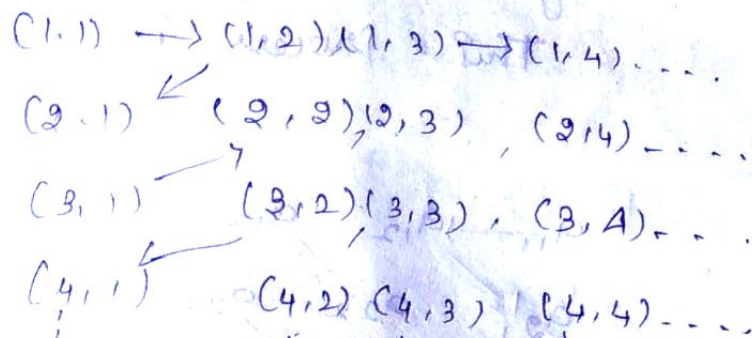 (1.1) → (1,2), (1,3) → (1,4)....
(2.1) (2,2), (2,3), (2,4)....
(3,1) (3,2) (3,3), (3,4)...
(4,1) (4,2) (4,3) (4,4)....